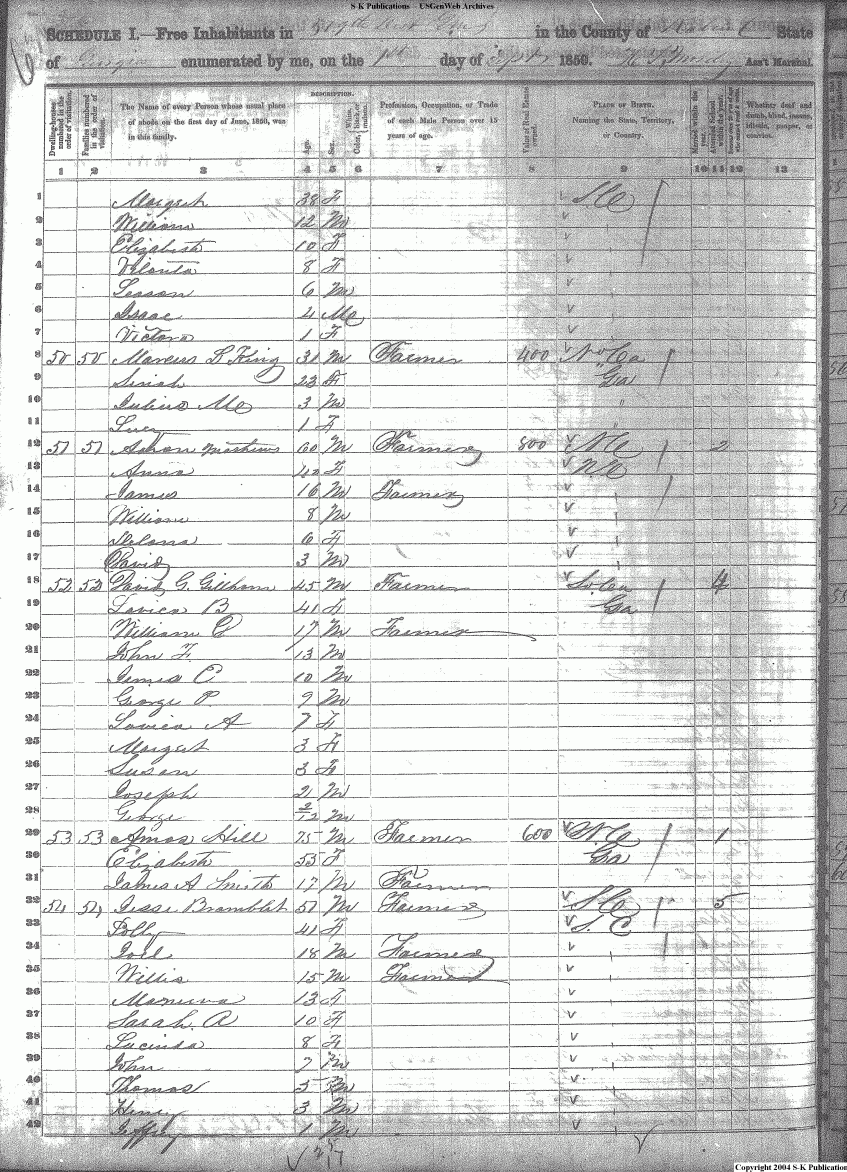 S-K Publications – USGenWeb Archives
SCHEDULE I.—Free Inhabitants in in the County of State
of Georgia enumerated by me, on the 1st day of Sept 1850. Ass't Marshal.
Dwelling-houses numbered in the order of visitation.
Families numbered in the order of visitation.
The Name of every Person whose usual place of abode on the first day of June, 1850, was in this family.
DESCRIPTION.
Age.
Sex.
Color, White, black, or mulatto.
Profession, Occupation, or Trade of each Male Person over 15 years of age.
Value of Real Estate owned.
PLACE OF BIRTH. Naming the State, Territory, or Country.
Married within the year.
Attended School within the year.
Whether deaf and dumb, blind, insane, idiotic, pauper, or convict.
1 2 3 4 5 6 7 8 9 10 11 12 13
1 Margret 38 F S C
2 William 12 M
3 Elizabeth 10 F
4 8 F
5 6 M
6 Isaac 4 M
7 Victora 1 F
8 50 50 Marcus L King 31 M Farmer 400 N Ca
9 23 F " Ga
10 Julius Mc 3 M "
11 Lucy 1 F
12 51 51 Aaron Mathews 60 M Farmer 800 N C 2
13 Anna 42 F N.C
14 James 16 M Farmer
15 William 8 M
16 6 F
17 David 3 M
18 52 52 David G. Gillham 45 M Farmer So Ca 4
19 Lovica B 41 F Ga
20 William C 17 M Farmer
21 John F. 13 M
22 James C 10 M
23 George P. 9 M
24 Lovica A 7 F
25 Margart 3 F
26 Susan 3 F
27 Joseph 2 M
28 George 2/12 M
29 53 53 Amos Hill 75 M Farmer 600 N. Ca 1
30 Elizabeth 53 F Ga
31 James A Smith 17 M Farmer
32 54 54 Jesse Bramblet 51 M Farmer S Ca 5
33 Polly 41 F S. C
34 Joel 18 M Farmer
35 Willis 15 M Farmer
36 Manerva 13 F
37 Sarah. A 10 F
38 Lucinda 8 F
39 John 7 M
40 Thomas 5 M
41 Henry 3 M
42 Jeffrey 1 M
Copyright 2004 S-K Publication